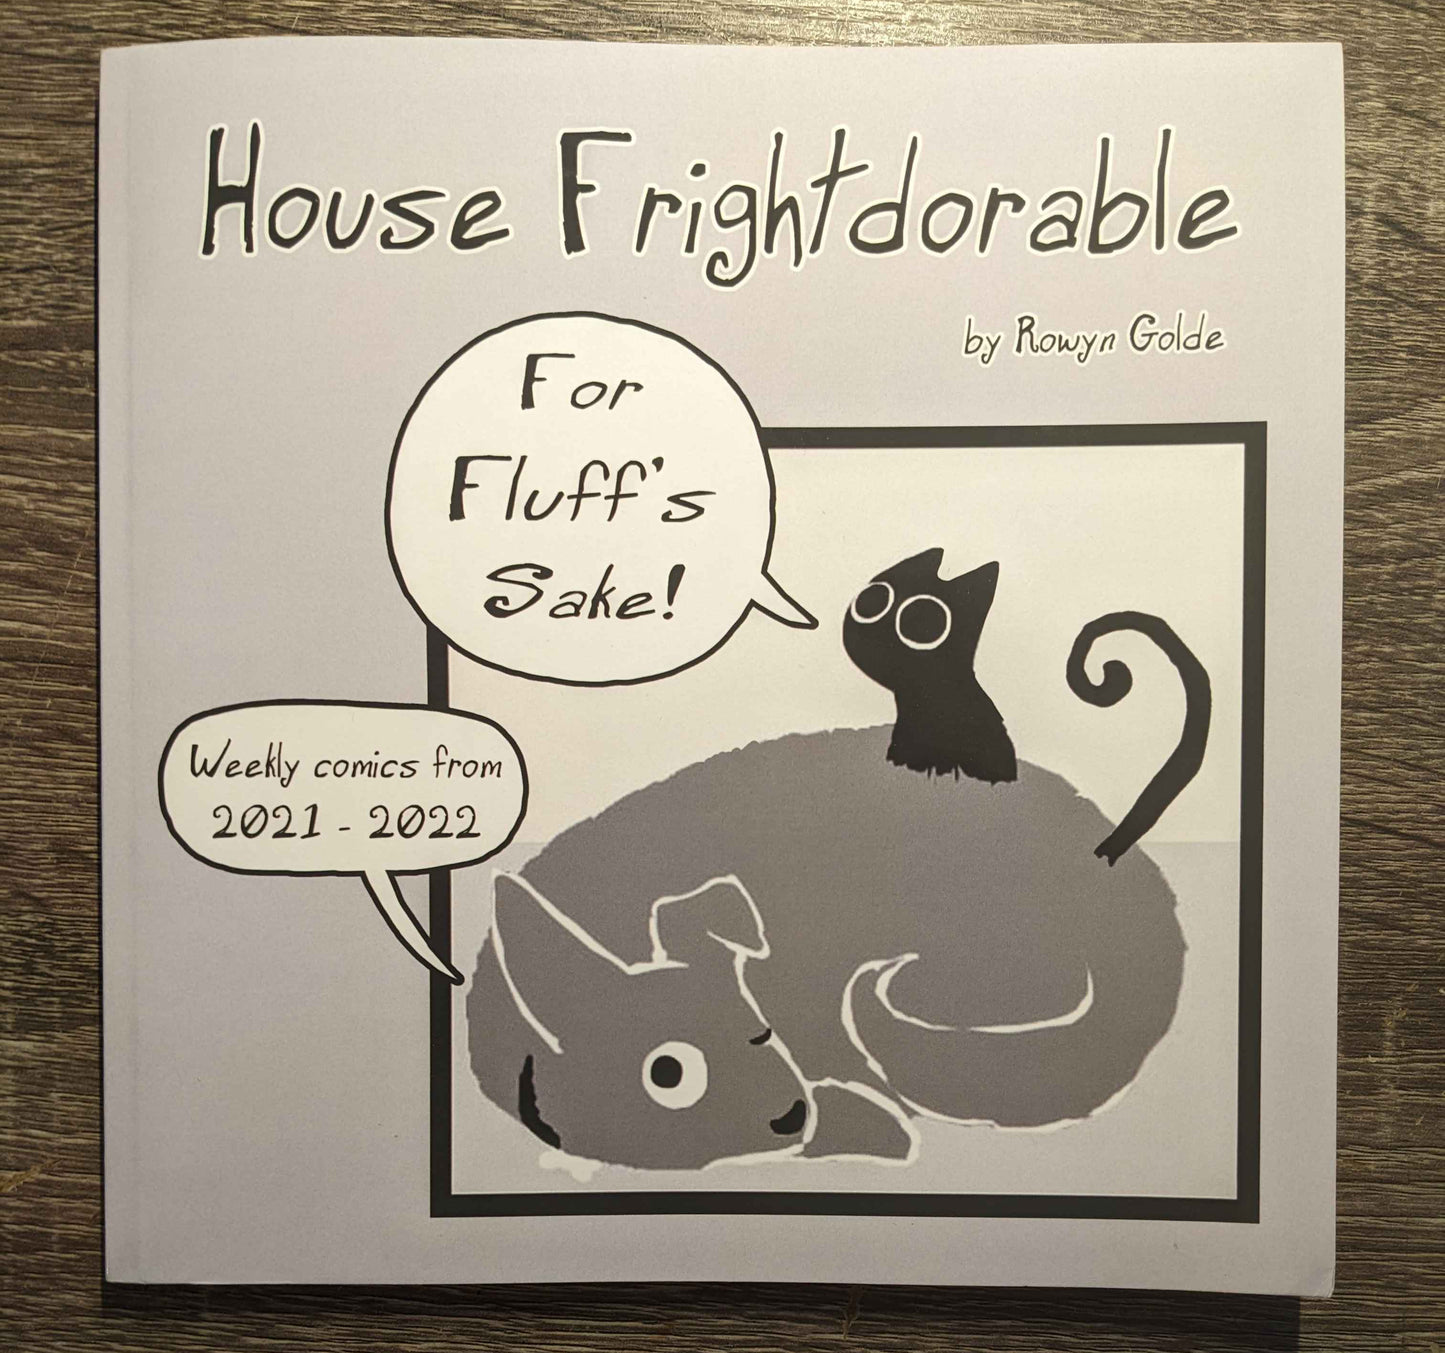 House Frightdorable
by Rowyn Golde
For
Fluff's
Sake!
Weekly comics from
2021 - 2022